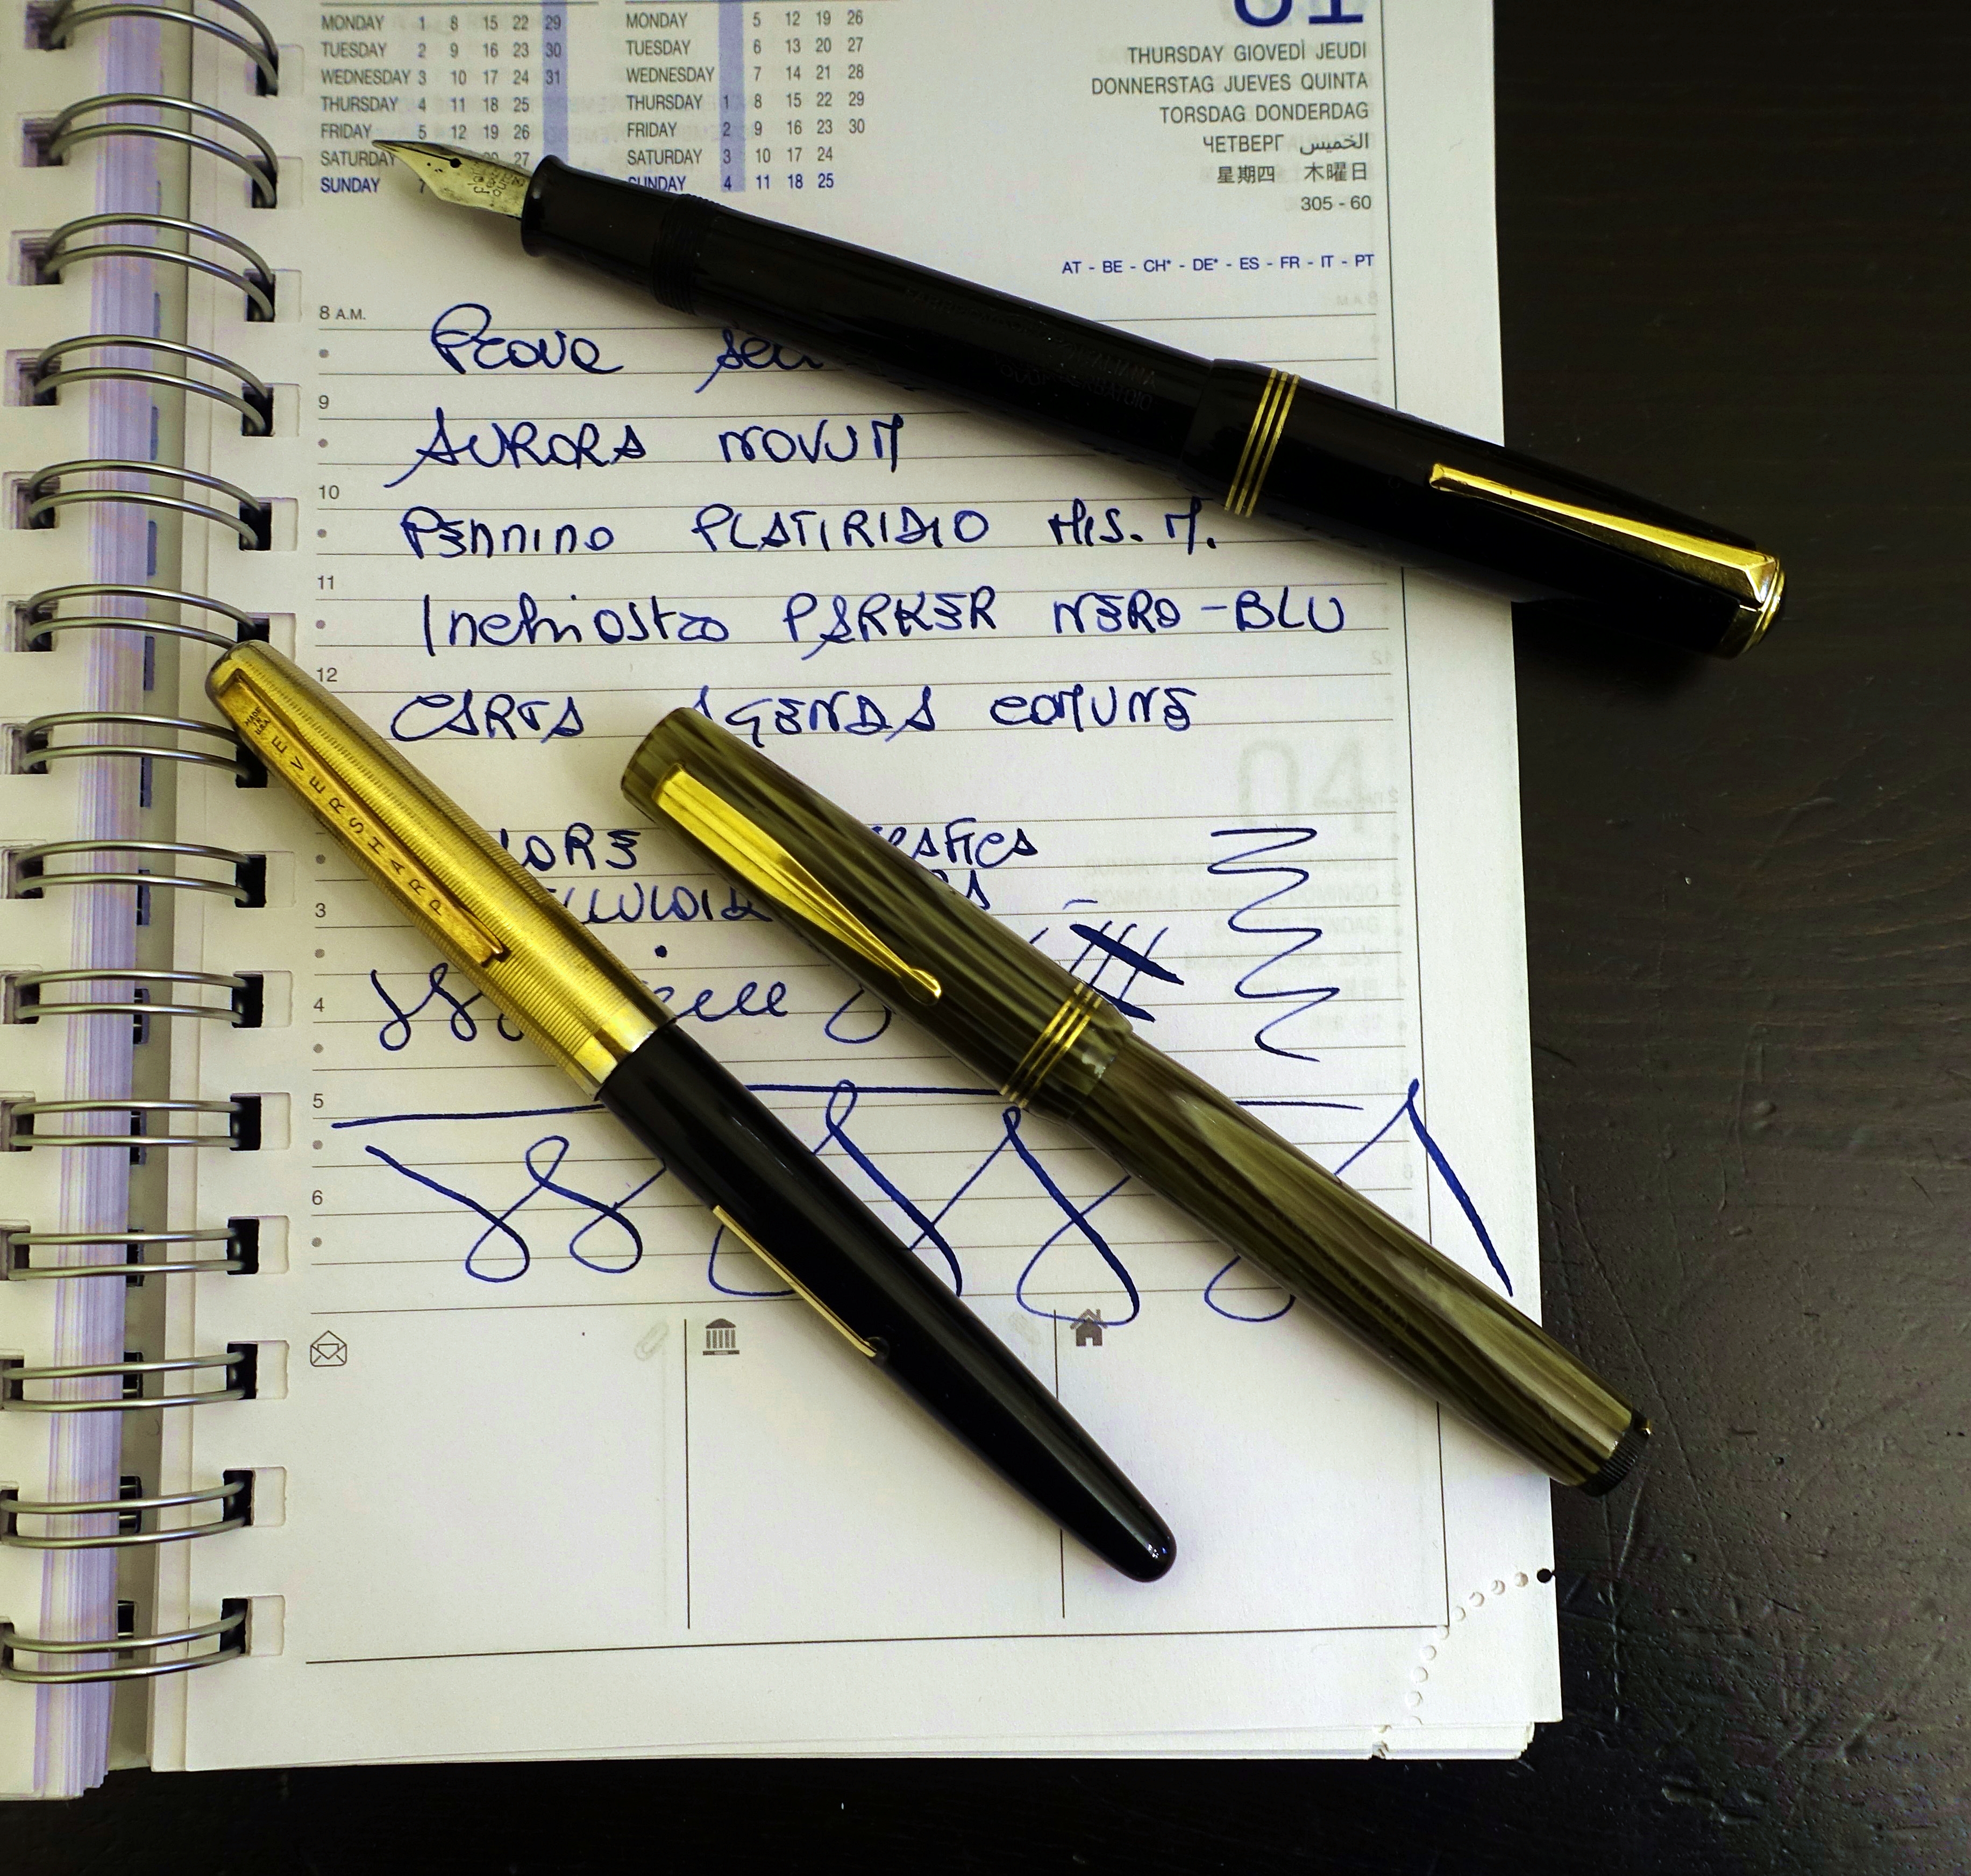 MONDAY 1 8 15 22 29
TUESDAY 2 9 16 23 30
WEDNESDAY 3 10 17 24 31
THURSDAY 4 11 18 25
FRIDAY 5 12 19 26
SATURDAY 27
SUNDAY 7
MONDAY 5 12 19 26
TUESDAY 6 13 20 27
WEDNESDAY 7 14 21 28
THURSDAY 1 8 15 22 29
FRIDAY 2 9 16 23 30
SATURDAY 3 10 17 24
SUNDAY 4 11 18 25
THURSDAY GIOVEDÌ JEUDI
DONNERSTAG JUEVES QUINTA
TORSDAG DONDERDAG
ЧЕТВЕРГ الخميس
星期四 木曜日
305 - 60
AT - BE - CH* - DE* - ES - FR - IT - PT
8 A.M.
Prova
9
AURORA NOVUM
10
Pennino PLATIRIDIO MIS. M.
11
Inchiostro PARKER NERO-BLU
12
CARTA AGENDA COMUNE
3
4
5
6
EVERSHARP
MADE IN U.S.A.